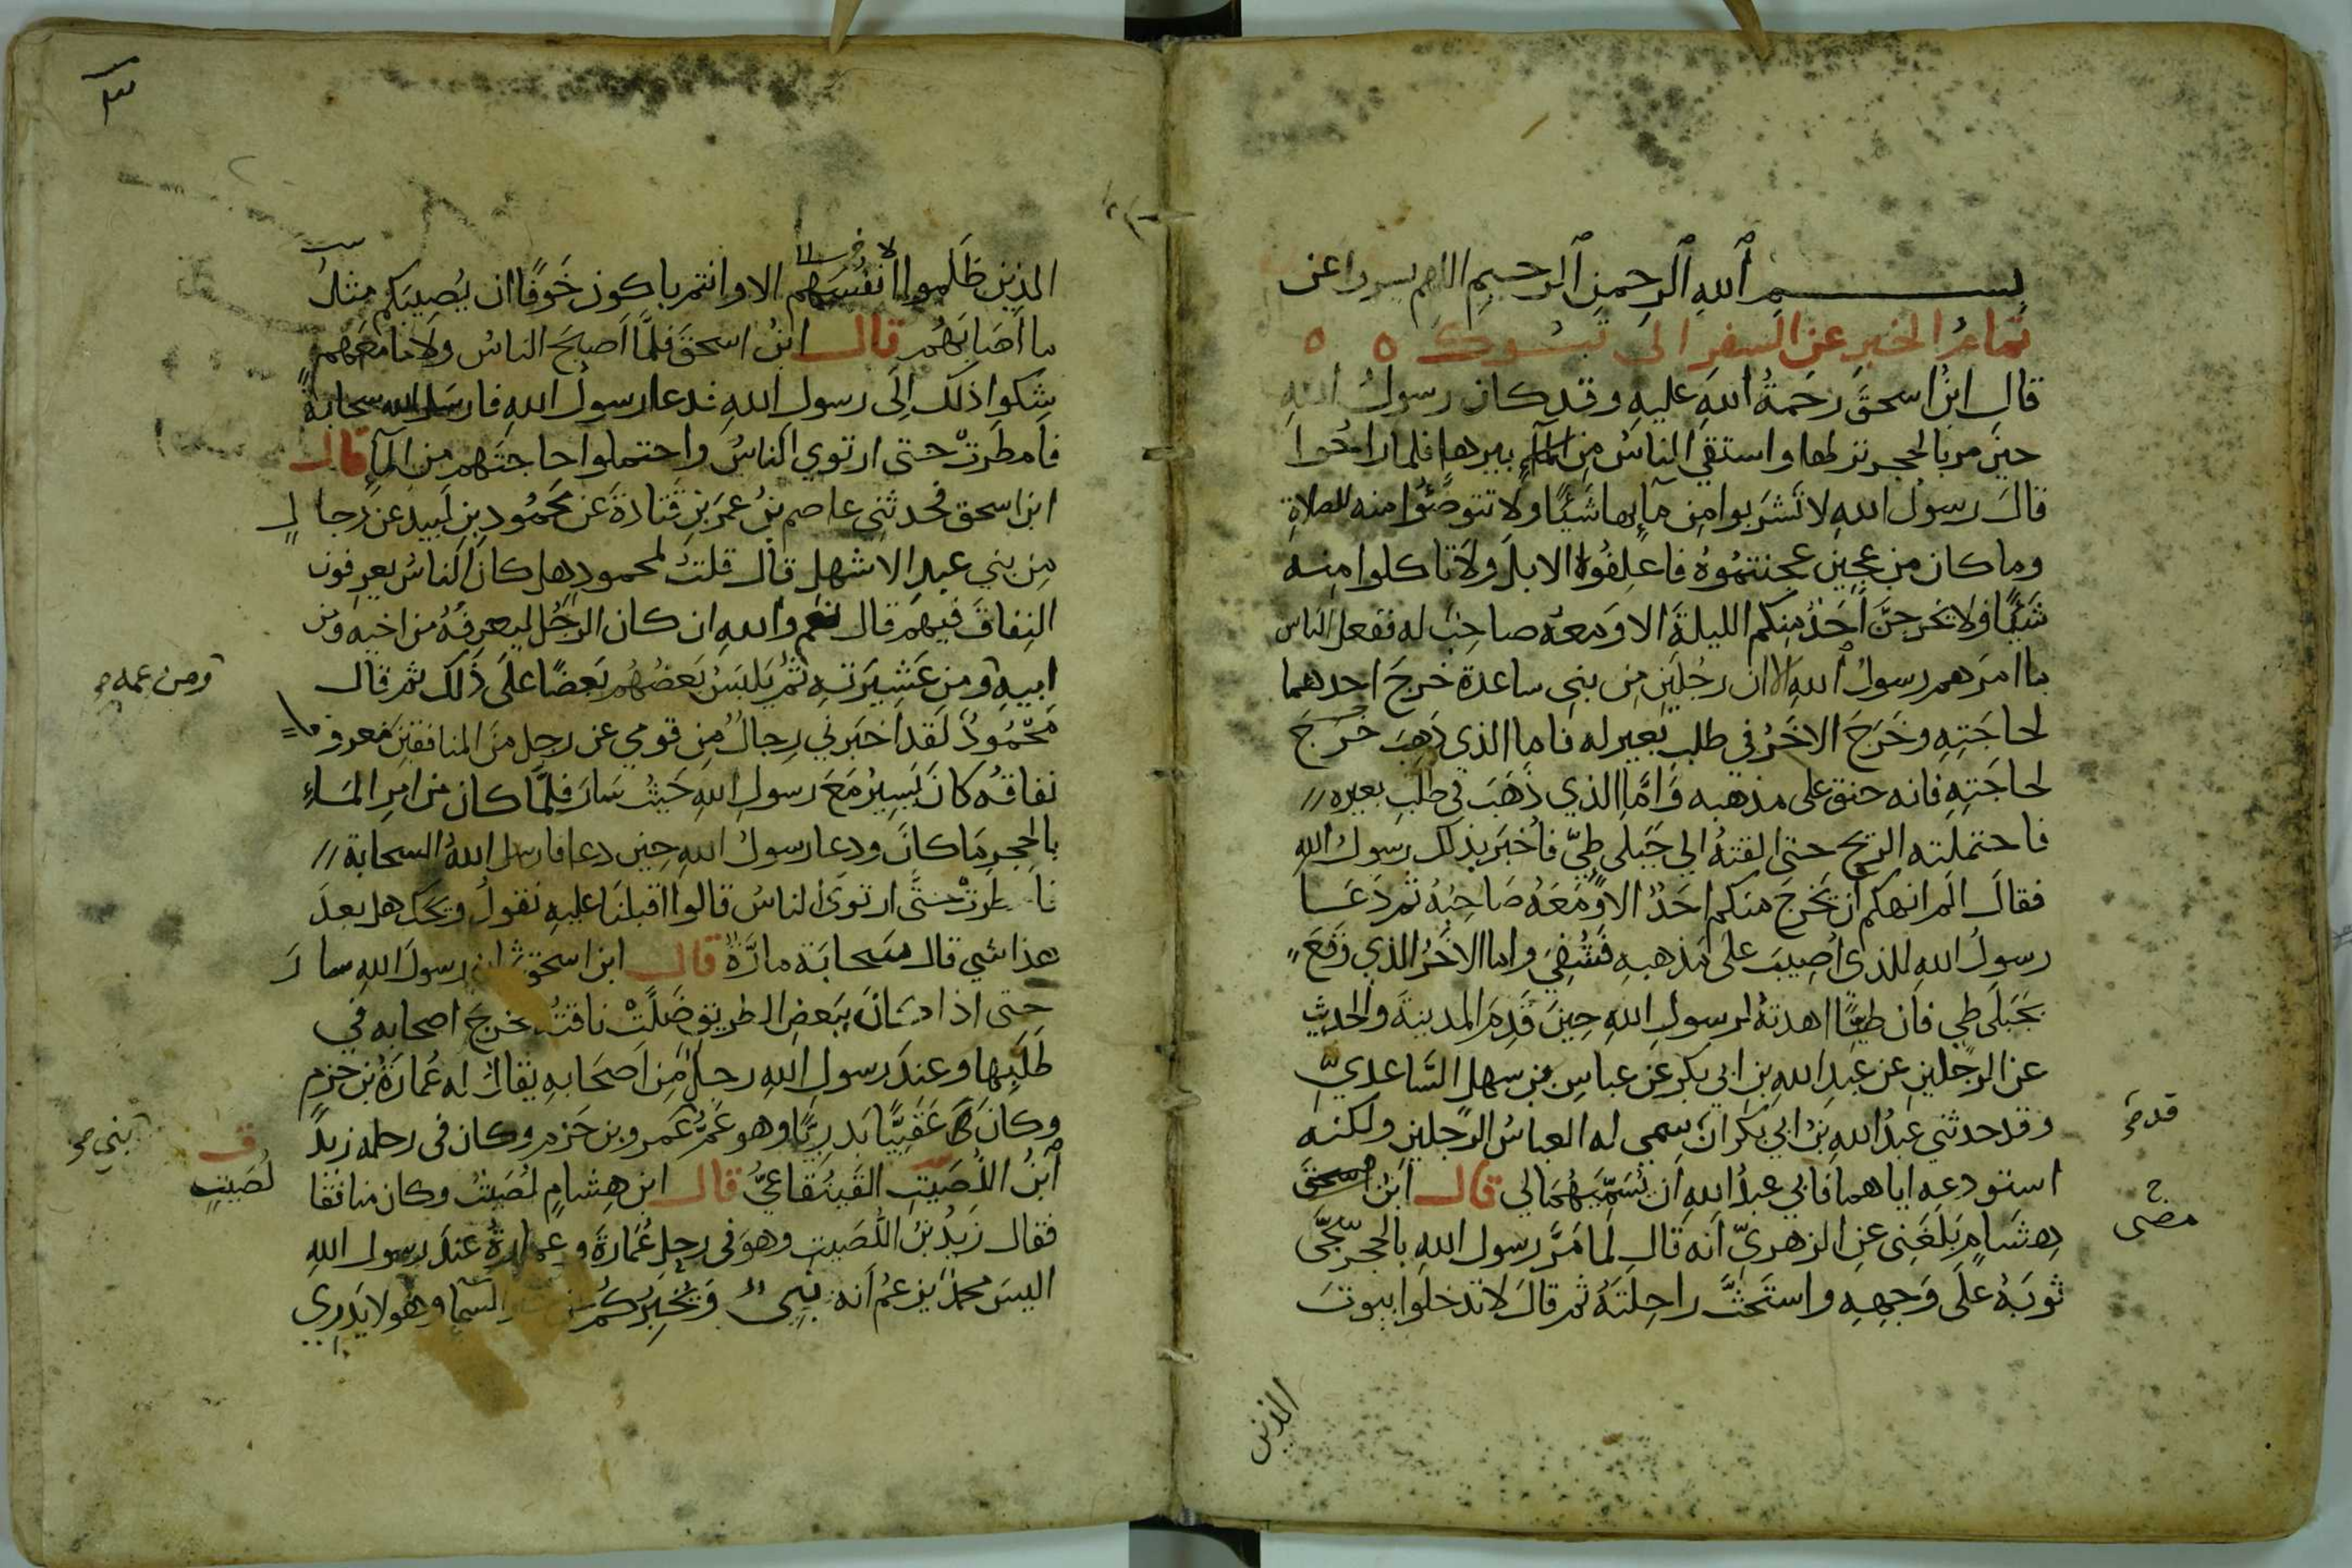 بسم الله الرحمن الرحيم اللهم يسر واعن
تمام الخبر عن السفر الى تبوك ه ه
قال ابن اسحق رحمة الله عليه وقد كان رسول الله
حين مر بالحجر نزلها واستقى الناس من الماء بيرها فلما راحوا
قال رسول الله لا تشربوا من مآيها شيئا ولا تتوضؤا منه للصلاة
وما كان من عجين عجنتموه فاعلفوه الابل ولا تاكلوا منه
شيئا ولا تخرجن احد منكم الليلة الا ومعه صاحب له ففعل الناس
ما امرهم رسول الله الا ان رجلين من بني ساعدة خرج احدهما
لحاجته وخرج الاخر في طلب بعير له فاما الذي ذهب خرج
لحاجته فانه خنق على مذهبه واما الذي ذهب في طلب بعيره //
فاحتملته الريح حتى القته الي جبلى طيّ فاخبر بذلك رسول الله
فقال الم انهكم ان يخرج منكم احد الا ومعه صاحبه ثم دعا
رسول الله للذى اصيب على مذهبه فشفي واما الاخر الذي وقع
بجبلى طي فان طيئا اهدته لرسول الله حين قدم المدينة والحديث
عن الرجلين عن عبد الله بن ابى بكر عن عباس بن سهل الساعديّ
وقد حدثني عبد الله بن ابي بكر ان سمى له العباس الرجلين ولكنه
قد صح
استودعه اياهما فابي عبد الله ان يسميهما لي قال ابن اسحق
هشام بلغنى عن الزهريّ انه قال لما مرّ رسول الله بالحجر سجّى
ثوبه على وجهه واستحثّ راحلته ثم قال لا تدخلوا بيوت
الذين
الذين ظلموا انفسهم الا وانتم باكون خوفا ان يصيبكم مثل
ما اصابهم قال ابن اسحق فلمّا اصبح الناس ولا ما معهم
شكوا ذلك الى رسول الله فدعا رسول الله فارسل الله سحابة
فامطرت حتى ارتوي الناس واحتملوا حاجتهم من المآ قال
ابن اسحق فحدثنى عاصم بن عمر بن قتادة عن محمود بن لبيد عن رجال
من بني عبد الاشهل قال قلت لمحمود هل كان الناس يعرفون
النفاق فيهم قال نعم والله ان كان الرجل ليعرفه من اخيه ومن
ابيه ومن عشيرته ثم يلبس بعضهم بعضا على ذلك ثم قال
ومن عمه صح
محمود لقد اخبرني رجال من قومي عن رجل من المنافقين معروف
نفاقه كان يسير مع رسول الله حيث سار فلمّا كان من امر الماء
بالحجر ما كان ودعا رسول الله حين دعا فارسل الله السحابة //
فامطرت حتّى ارتوى الناس قالوا اقبلنا عليه نقول ويحك هل بعد
هذا شي قال سحابة مارّة قال ابن اسحق ثم ان رسول الله سار
حتى اذا كان ببعض الطريق ضلّت ناقته خرج اصحابه في
طلبها وعند رسول الله رجل من اصحابه يقال له عمارة بن حزم
وكان عقبيّا بدريّا وهو عمّ عمرو بن حزم وكان فى رحله زيد
بني صح
ابن اللصيت القينقاعيّ قال ابن هشام لصيب وكان منافقا
لصيت
فقال زيد بن اللصيت وهو فى رحل عمارة وعمارة عند رسول الله
اليس محمد يزعم انه نبي ويخبركم السمآ وهو لا يدري